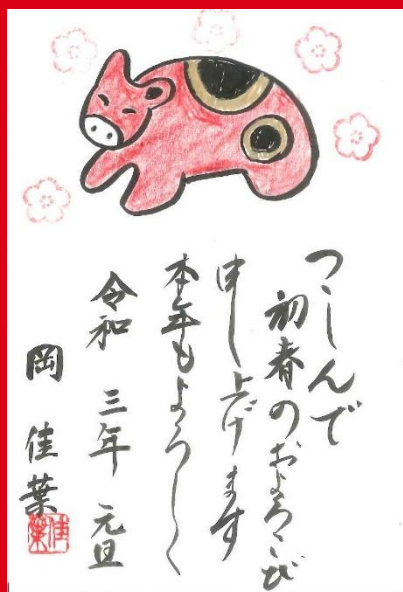 つゝしんで
初春のおよろこび
申し上げます
本年もよろしく
令和 三年 元旦
岡 佳葉
佳葉